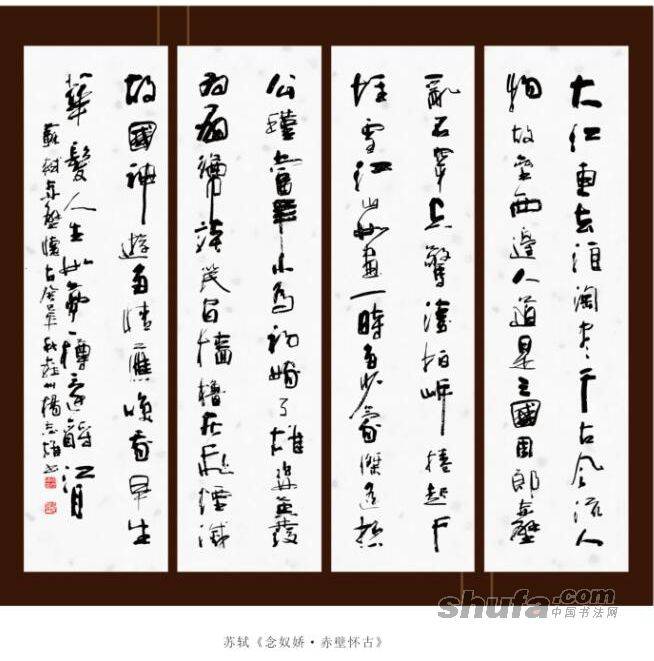 大江東去浪淘盡千古風流人
物故壘西邊人道是三國周郎赤壁
亂石穿空驚濤拍岸捲起千
堆雪江山如畫一時多少豪傑遙想
公瑾當年小喬初嫁了雄姿英發
羽扇綸談笑間檣櫓灰飛煙滅
故國神遊多情應笑我早生
華髮人生如夢一樽還酹江月
蘇軾赤壁懷古
shufa.com
中国书法网
苏轼《念奴娇·赤壁怀古》